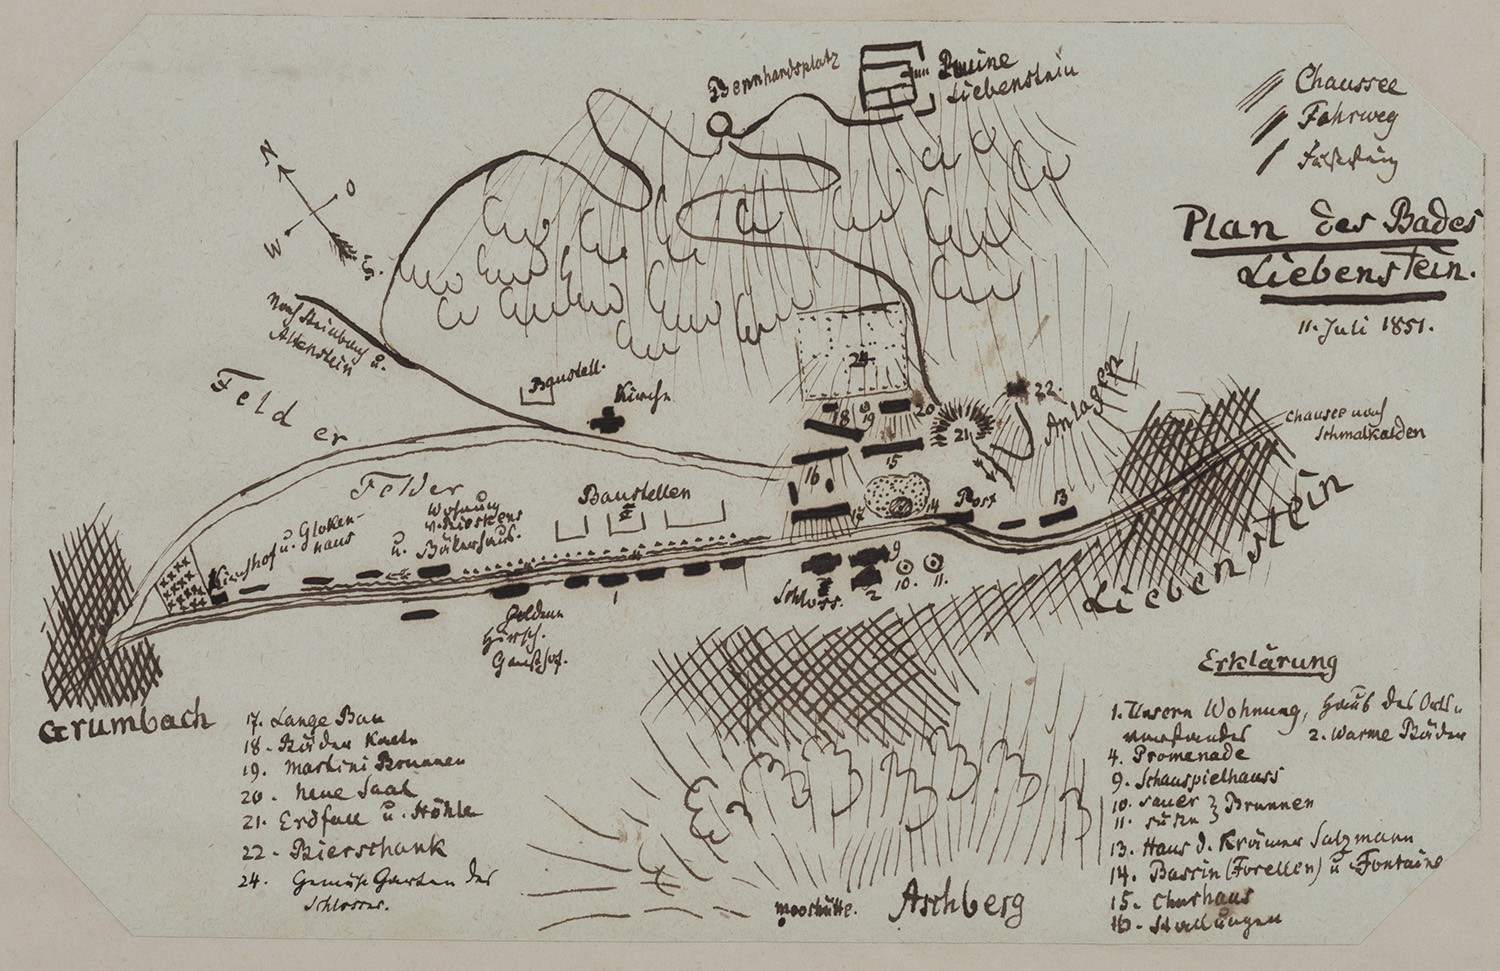 Bernhardsplatz
Ruine
Liebenstein
Chaussee
Fahrweg
Fußsteig
Plan des Bades
Liebenstein.
11. Juli 1851.
N
O
W
S.
nach Steinbach u.
Altenstein
Felder
Baustell.
Kirche
24.
18
19
20
22.
Anlagen
21.
15
16
Chausee nach
Schmalkalden
Felder
Baustellen
Wohnung
u. Bäkerhaus.
Kirchhof
u. Gloken-
haus
17
14
Post
13
Liebenstein
Schloss.
9
2
10.
11.
1
Goldene
Hirsch.
Gasthof.
Grumbach
17. Lange Bau
18. Bäder Kaete
19. Martini Brunnen
20. Neue Saal
21. Erdfall u. Höhle
22. Bierschank
24. Gemüse Garten des
Schlosses.
Mooshütte.
Aschberg
Erklärung
1. Unsere Wohnung, Haus des Orts-
vorstandes 2. Warme Bäder
4. Promenade
9. Schauspielhauss
10. sauer } Brunnen
11. süße
13. Haus d. Krämer Salzmann
14. Bassin (Forellen) u Fontaine
15. Churhaus
16. Stallungen